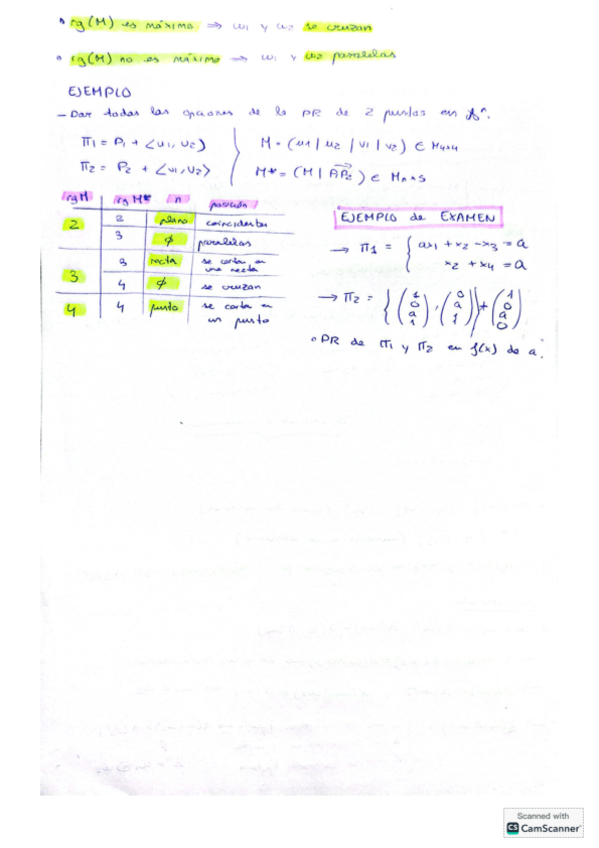 • rg(M) es máximo ⇒ w1 y w2 se cruzan
• rg(M) no es máximo ⇒ w1 y w2 paralelas
EJEMPLO
- Dar todas las opciones de la PR de 2 puntos en Aⁿ.
π1 = P1 + <u1, u2>
π2 = P2 + <v1, v2>
M = (u1 | u2 | v1 | v2) ∈ M4x4
M* = (M | P1P2) ∈ Mnx5
rgM rgM* n posición
2 2 plano coincidentes
3 ∅ paralelos
3 3 recta se cortan en una recta
4 ∅ se cruzan
4 4 punto se cortan en un punto
EJEMPLO de EXAMEN
→ π1 = { ax1 + x2 - x3 = a
x2 + x4 = a
→ π2 = { (1 0 a 1), (0 a 1) } + (1 0 a 0)
• PR de π1 y π2 en f(x) de a.
Scanned with
CS CamScanner